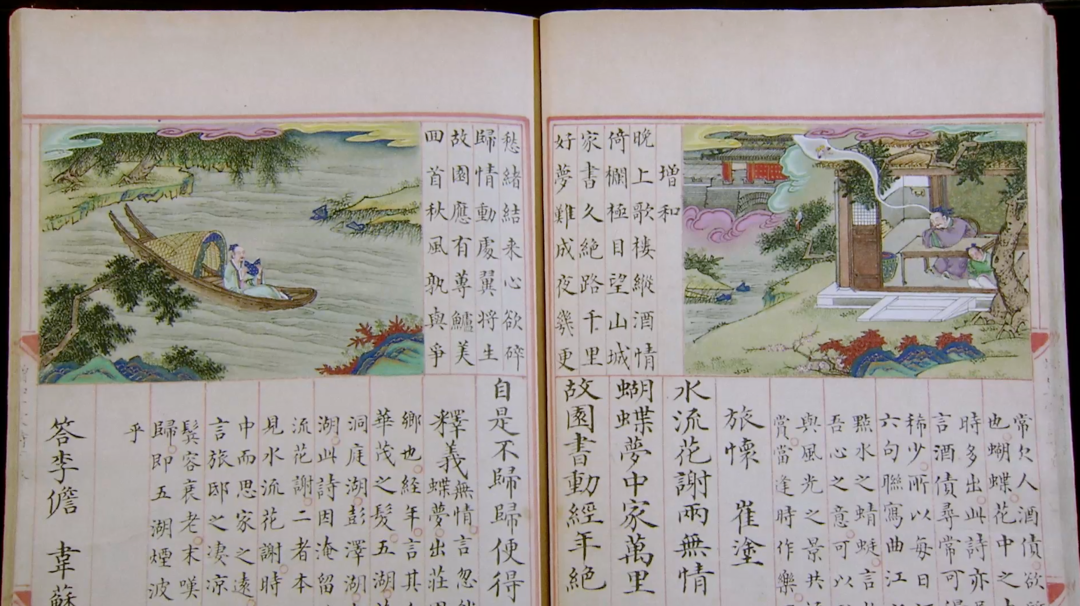 常欠人酒債欲
也蝴蝶花中之
時多出此詩亦
言酒債尋常可
稀少所以每日
六句聯寫曲江
點水之蜻蜓言
吾心之意可以
與風光之景共
賞當逢時作樂
旅懷 崔塗
水流花謝兩無情
蝴蝶夢中家萬里
故園書動經年絶
增和
晚上歌楼縱酒情
倚欄極目望山城
家書久絶路千里
好夢難成夜幾更
愁緒結来心欲碎
歸情動處翼将生
故園應有蓴鱸美
回首秋風孰與爭
自是不歸歸便得
釋義無情言忽
蝶夢出莊
鄉也経年言其
華茂之髮五湖
洞庭湖彭澤湖
湖此詩因淹留
流花謝二者本
見水流花謝時
中而思家之遠
言旅邸之凄凉
鬂容衰老末嘆
歸即五湖煙波
乎
答李儋 韋蘇